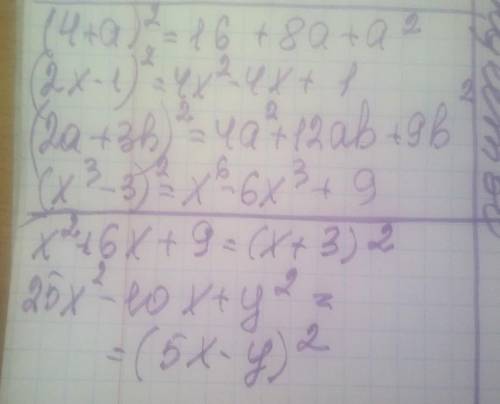 (4+a)²=16+8a+a²
(2x-1)²=4x²-4x+1
(2a+3b)²=4a²+12ab+9b²
(x³-3)²=x⁶-6x³+9
x²+6x+9=(x+3)²
25x²-10x+y²=
=(5x-y)²